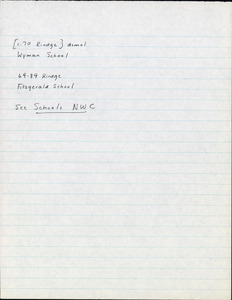 [c. 70 Rindge] demol
Wyman School
64-84 Rindge
Fitzgerald School
See Schools NWC